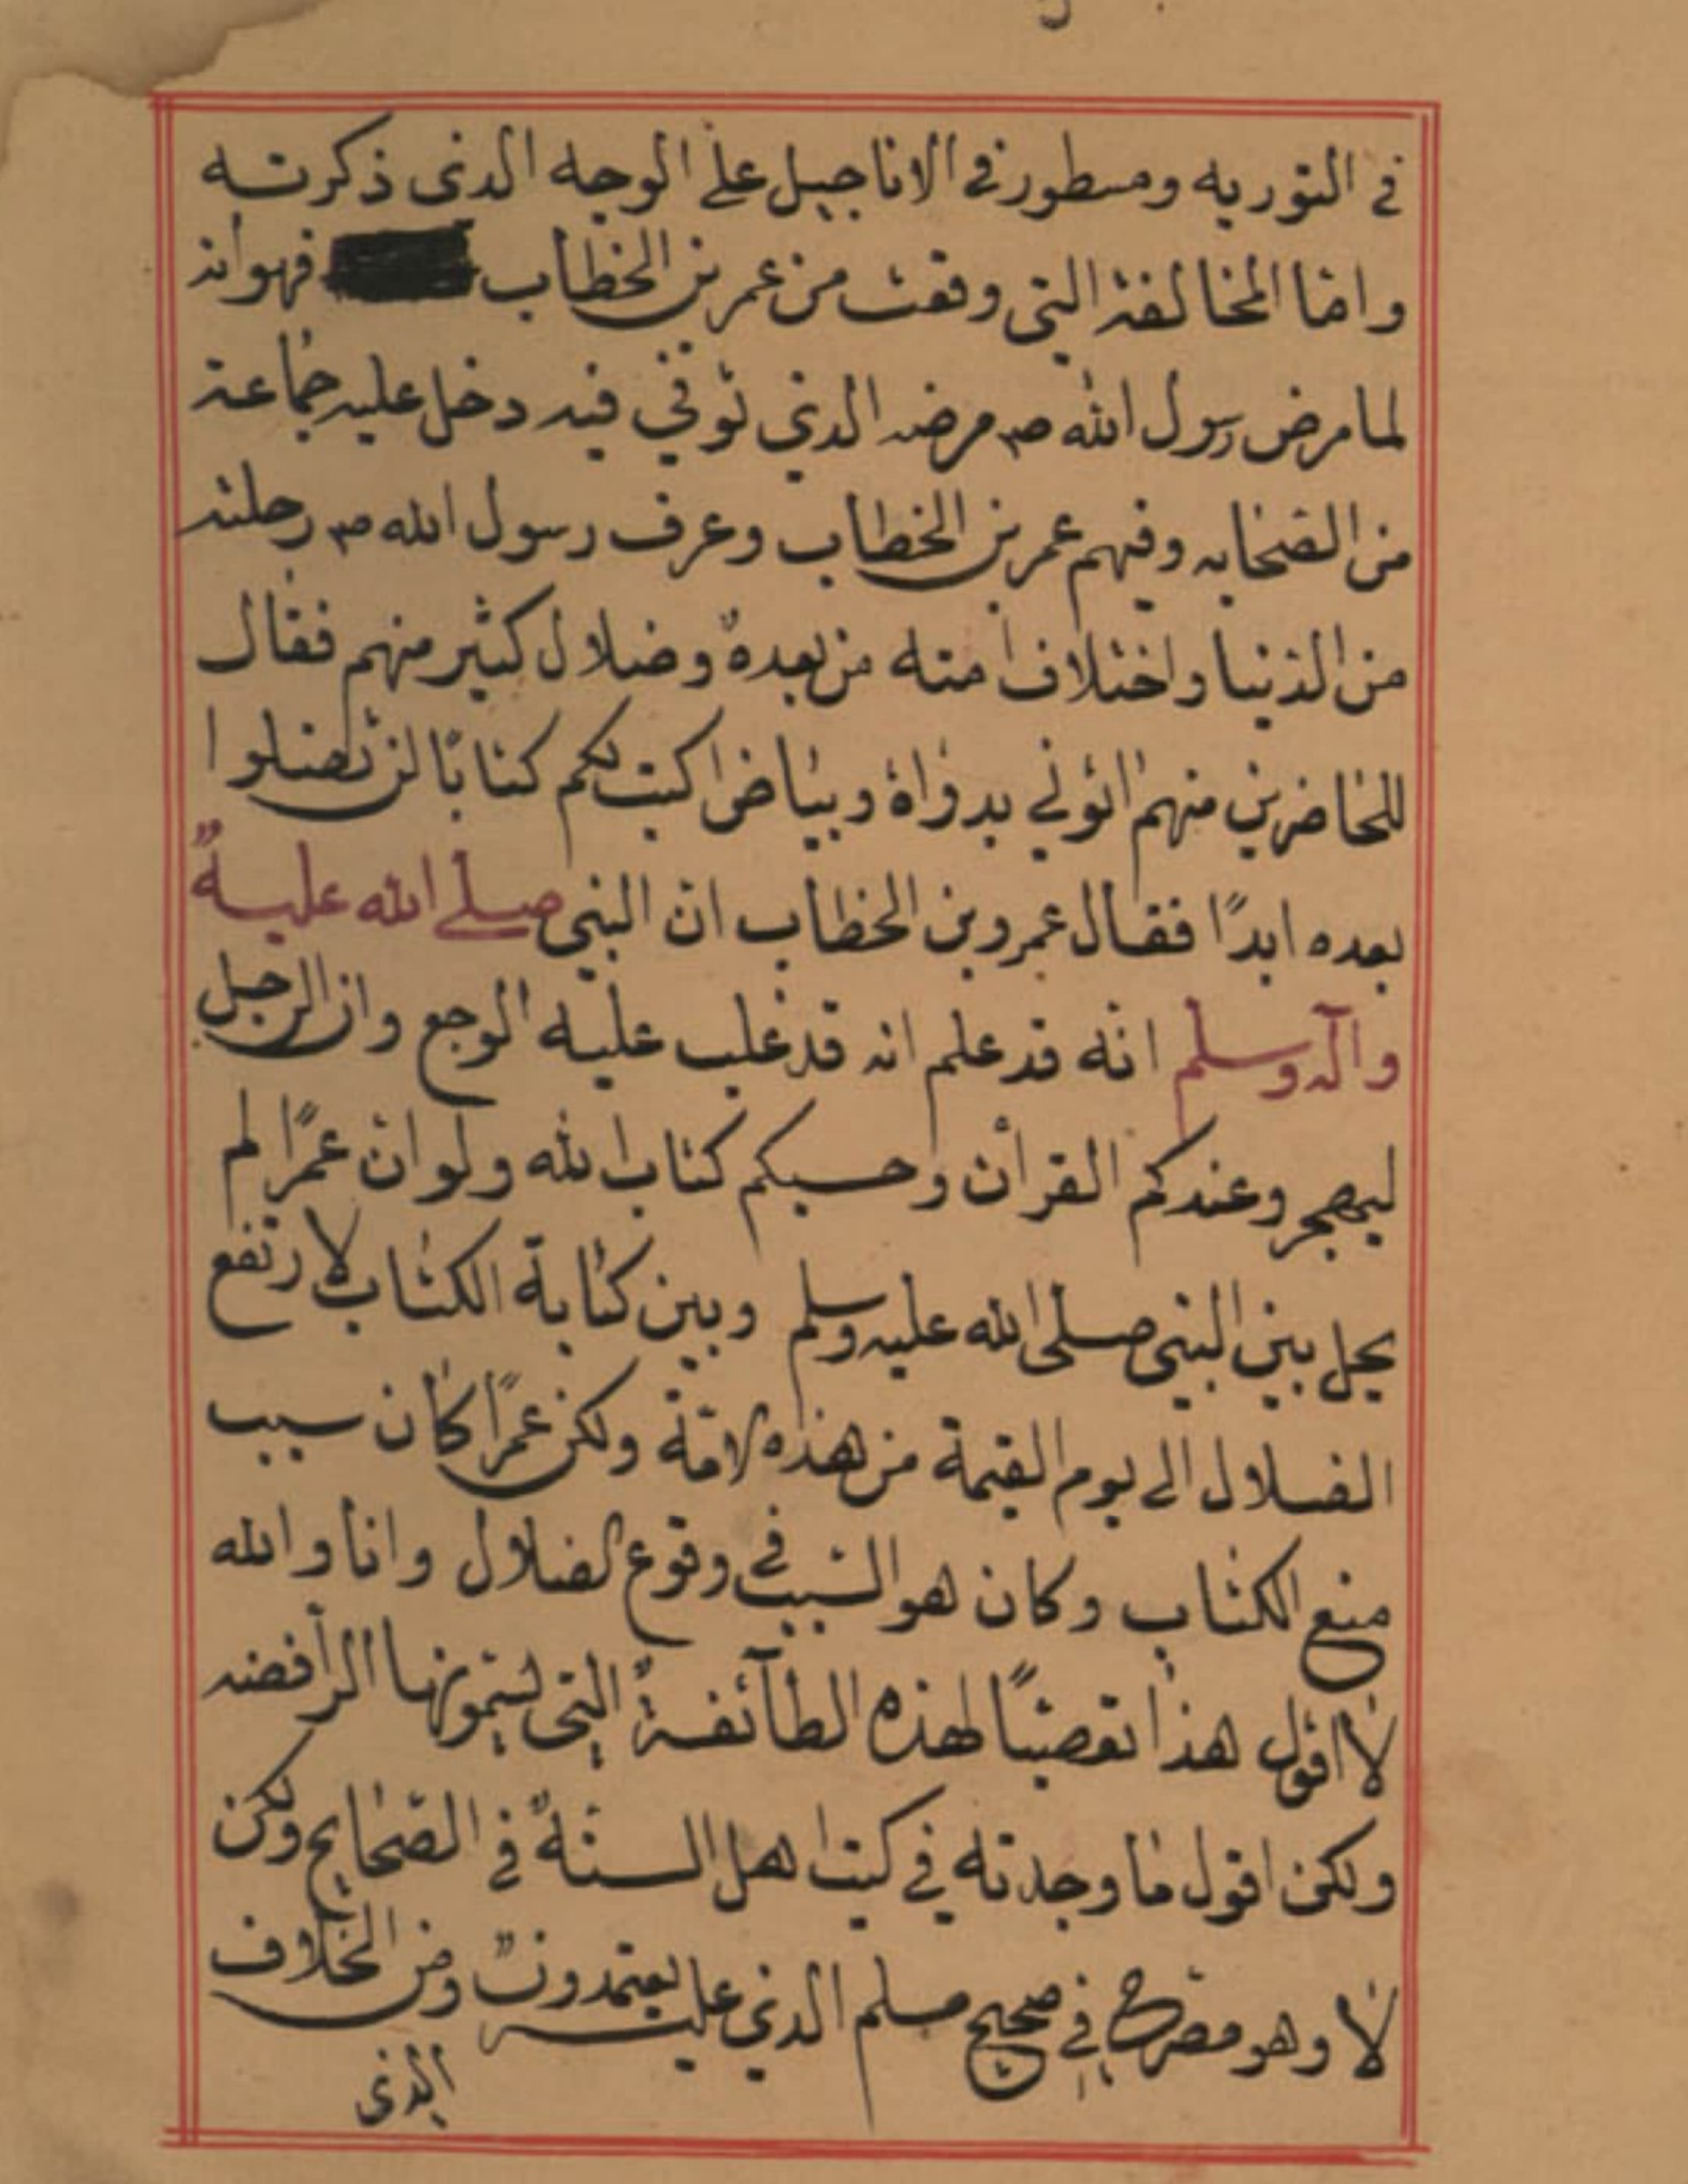 في التوريه ومسطور في الاناجيل على الوجه الذى ذكرته
واما المخالفة التي وقعت من عمر بن الخطاب فهو انه
لما مرض رسول الله صم مرضه الذي توفي فيه دخل عليه جماعة
من الصحابه وفيهم عمر بن الخطاب وعرف رسول الله صم رحلته
من الدنيا واختلاف امته من بعده وضلال كثير منهم فقال
للحاضرين منهم ائوني بدواة وبياض اكتب لكم كتابًا لن تضلوا
بعده ابدًا فقال عمرو بن الخطاب ان النبي صلى الله عليه
وآله وسلم انه قد علم انه قد غلب عليه الوجع وان الرجل
ليهجر وعندكم القرأن وحسبكم كتاب الله ولو ان عمرًا لم
يحل بين النبي صلى الله عليه وسلم وبين كتابة الكتاب لارتفع
الضلال الى يوم القيمة من هذه الامّة ولكن عمرًا كان سبب
منع الكتاب وكان هو السبب في وقوع الضلال وانا والله
لا اقول هذا تعصبًا لهذه الطآئفة التي تسمونها الرافضه
ولكن اقول ما وجدته في كتب اهل السنة في الصحايح ولكن
لا وهو مصرح في صحيح مسلم الذي عليه يعتمدون ومن الخلاف
الذى